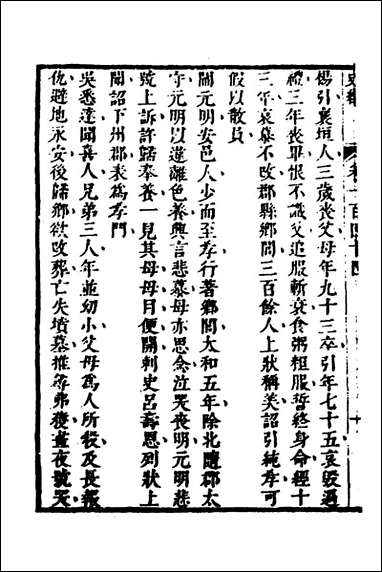 楊引襄垣人三歲喪父母年九十三卒引年七十五哀毀過
禮三年喪畢恨不識父追服斬衰食粥粗服誓終身命經十
三年哀慕不改郡縣鄉閭三百餘人上狀稱美詔引純孝可
假以散員
閻元明安邑人少而至孝行著鄉閭太和五年除北隨郡太
守元明以違離色養興言悲慕母亦思念泣哭喪明元明悲
號上訴許歸奉養一見其母母目便開刺史呂壽恩列狀上
聞詔下州郡表爲孝門
吳悉達聞喜人兄弟三人年並幼小父母爲人所殺及長報
仇避地永安後歸鄉欲改葬亡失墳墓推尋弗獲晝夜號哭